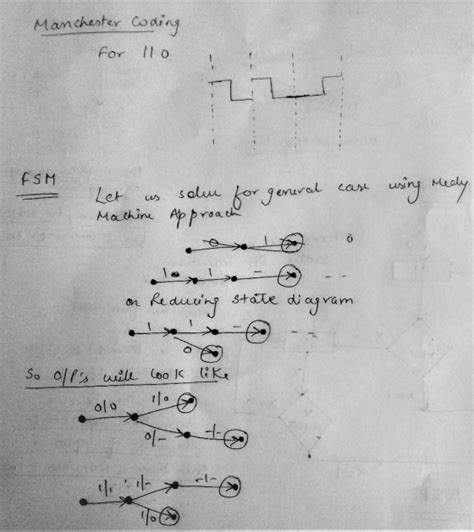 Manchester Coding
For 110
FSM
Let us solve for general case using Mealy
Machine Approach
0 1 0
1 0 1 - - -
on Reducing state diagram
1 1 - - -
0
So O/P's will look like
1/0
0/0
0/- -/-
1/1 1/- -/-
1/0